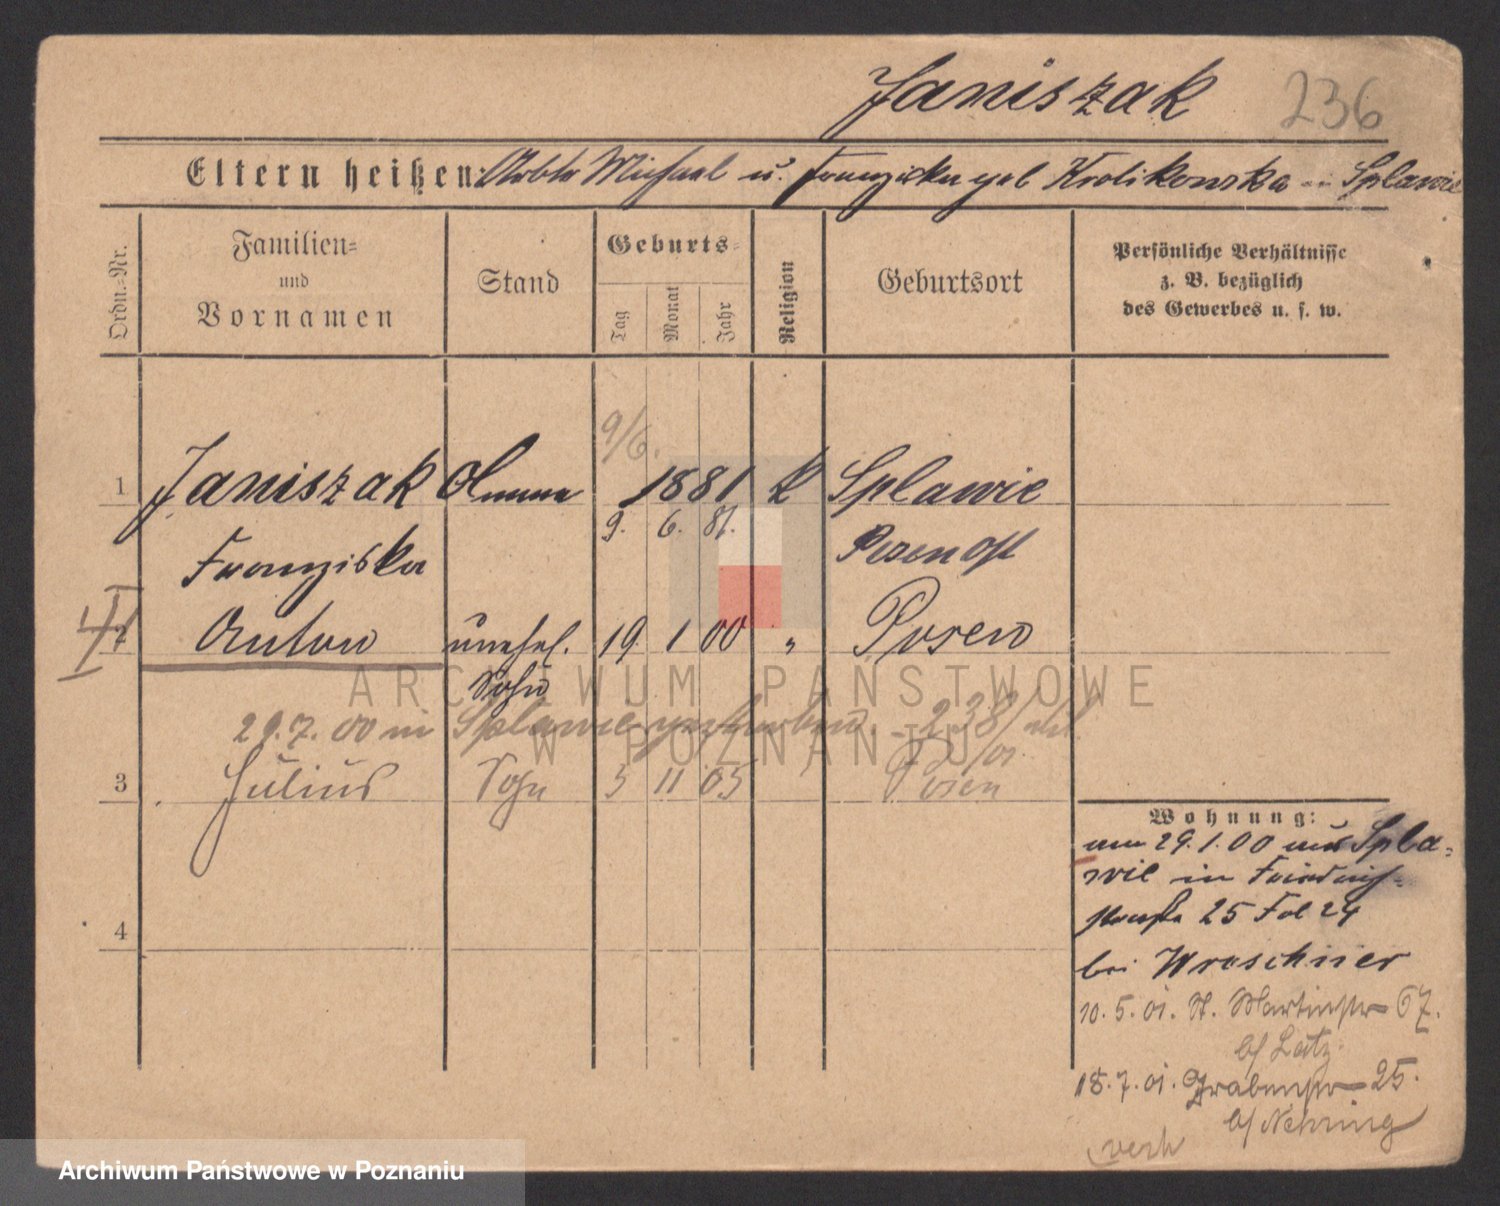 Janiszak 236
Eltern heißen: Arbtr Michael u. Franziska geb Krolikowska in Splawie
Ordn.-Nr.
Familien-
und
Vornamen
Stand
Geburts-
Tag
Monat
Jahr
Religion
Geburtsort
Persönliche Verhältnisse
z. B. bezüglich
des Gewerbes u. s. w.
9/6.
1 Janiszak Amme 1881 k Splawie
9. 6. 81.
Franziska Posen Ost
2 Anton unehel. 19 1 00 " Posen
Sohn
29.7.00 in Splawie gestorben. 238
3 Julius Sohn 5 11 05 Posen
4
Wohnung:
am 29.1.00 aus Spla-
wie in Friedrich-
straße 25 Fol 24
bei Wraschner
10.5.01. St. Martinstr 67.
b/ Latz.
18.7.01. Grabenstr 25.
b/ Nehring
verh
ARCHIWUM PAŃSTWOWE
W POZNANIU
Archiwum Państwowe w Poznaniu